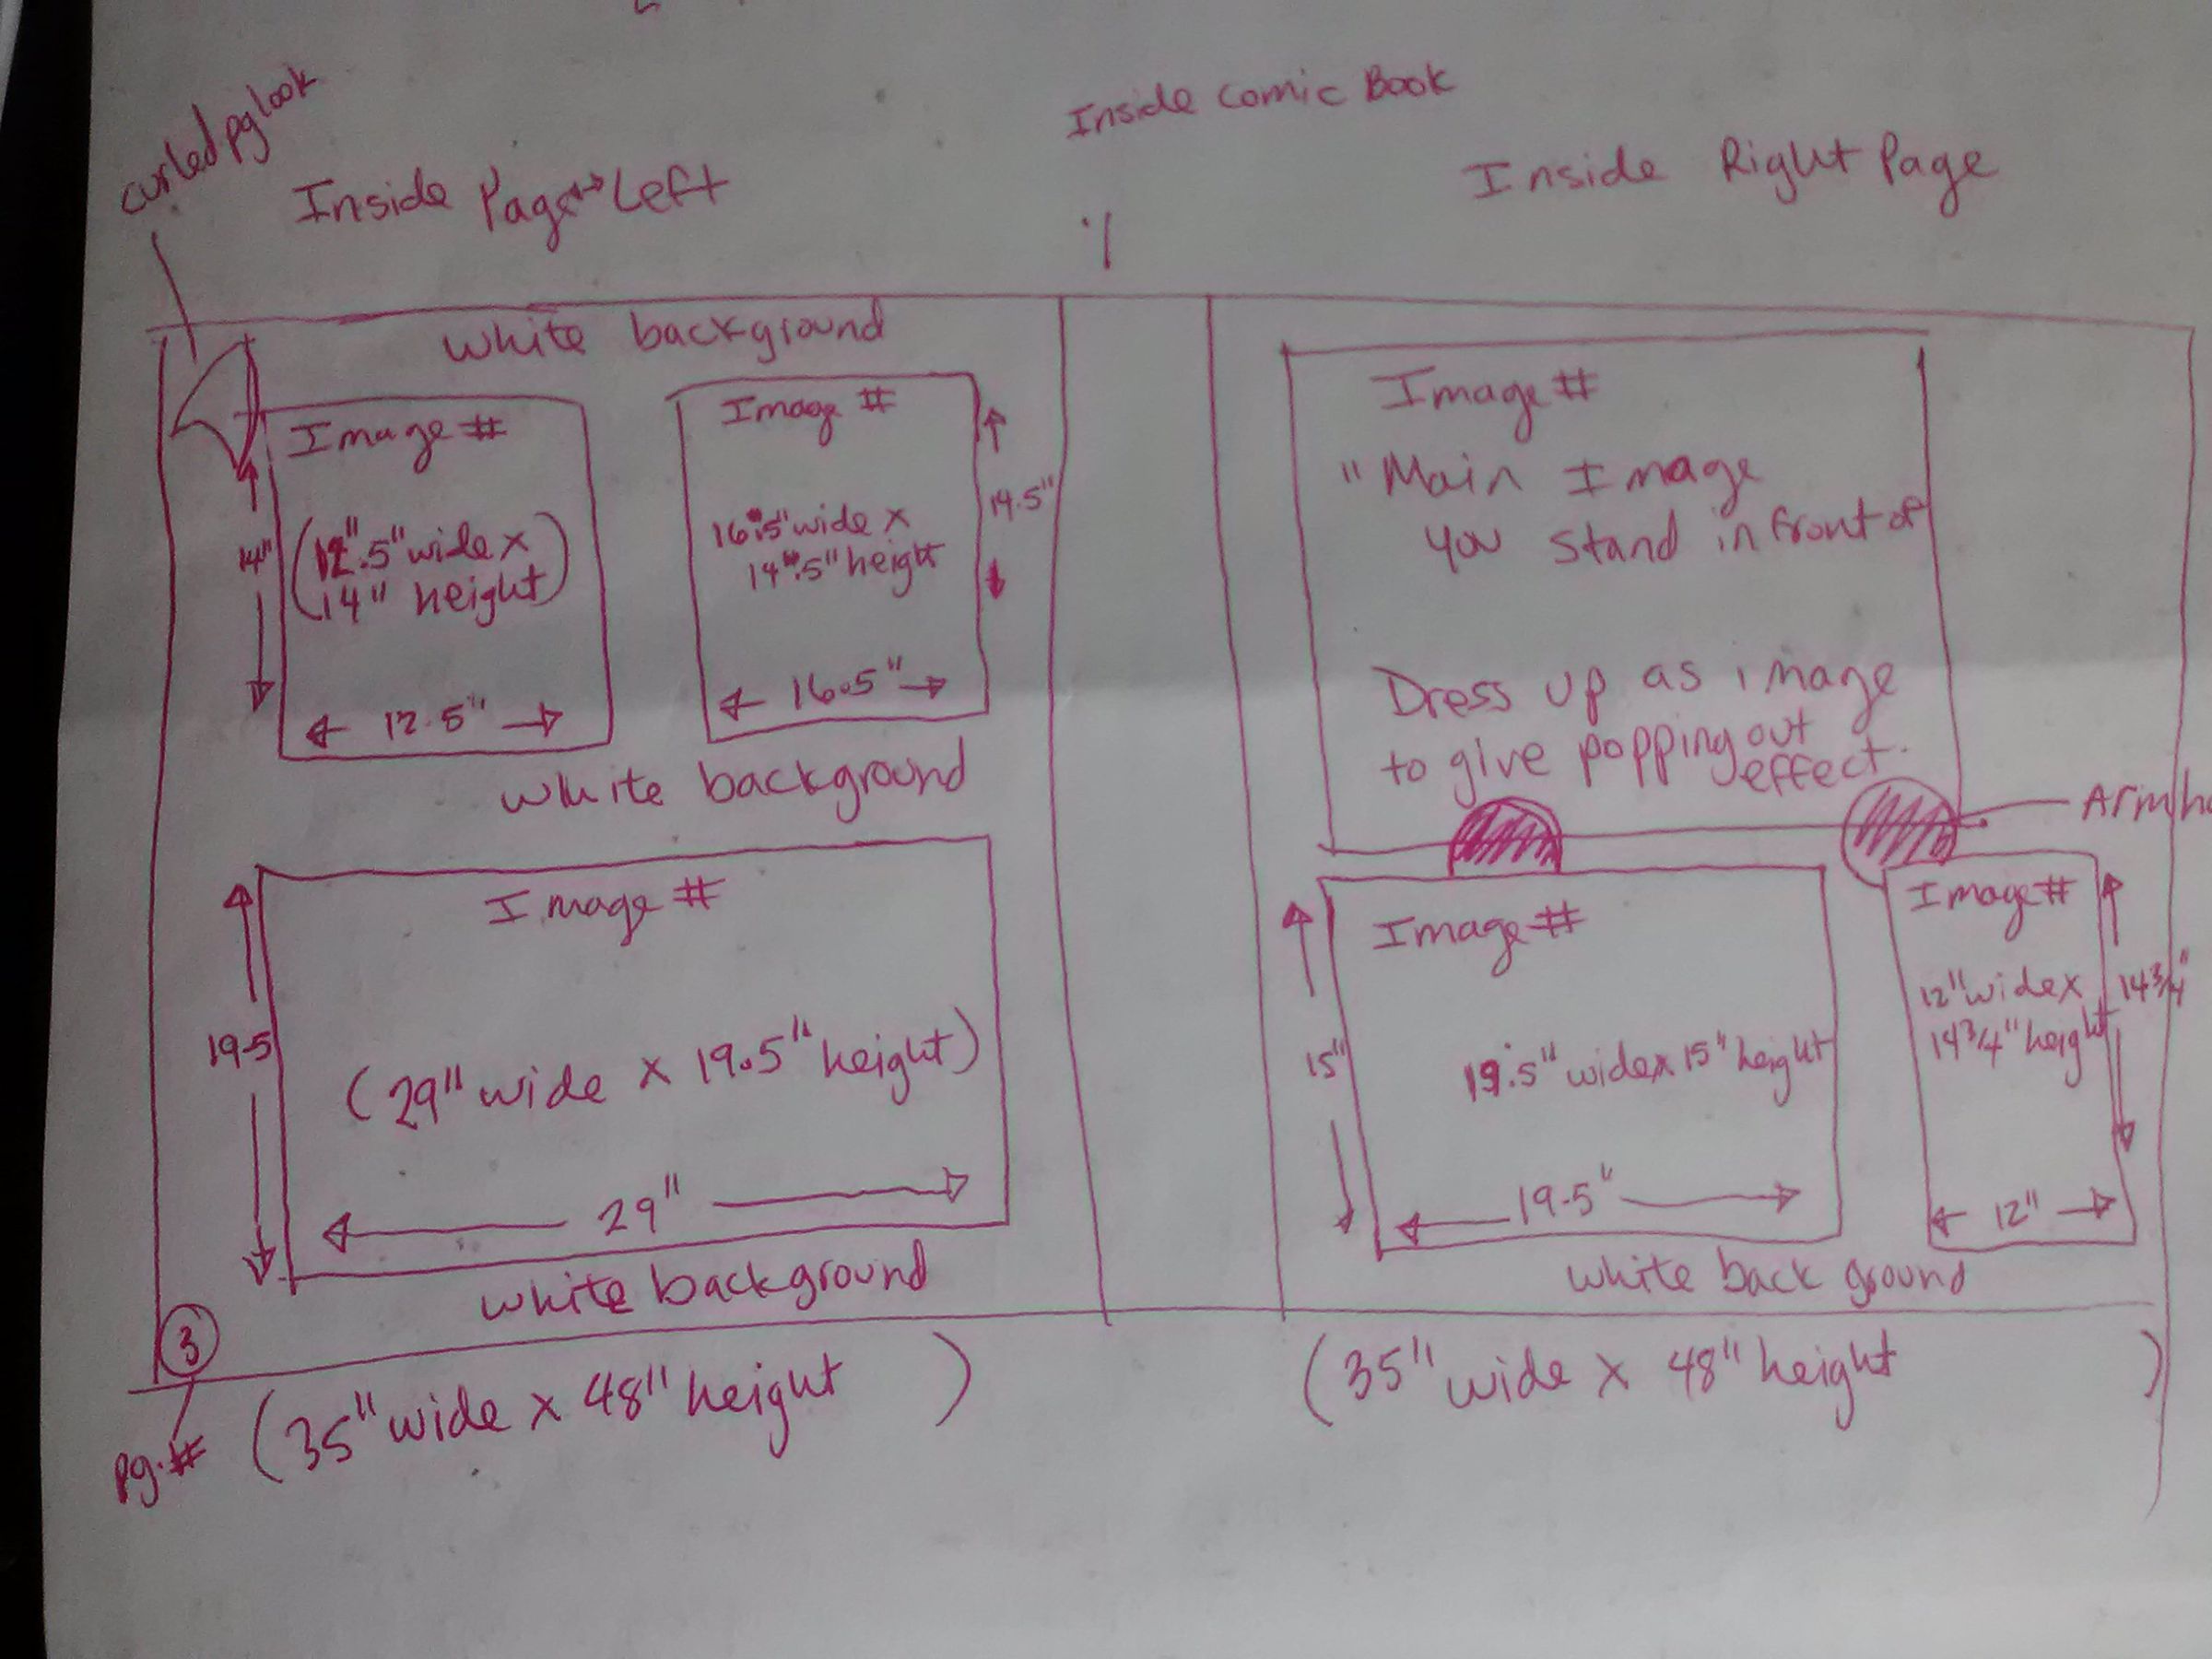 Inside Comic Book
curled pg look
Inside Page↔Left
Inside Right Page
White background
Image #
(12".5" wide x
14" height)
14"
← 12.5" →
Image #
16.5" wide x
14".5" height
14.5"
← 16.5" →
White background
Image #
19.5
(29" wide x 19.5" height)
← 29" →
White background
3
pg.#
(35" wide x 48" height)
Image #
"Main Image
you stand in front of
Dress up as image
to give popping out
effect.
Armho
Image #
15"
19.5" wide x 15" height
← 19.5" →
Image #
12" wide x
14 3/4" height
14 3/4"
← 12" →
White back ground
(35" wide x 48" height)